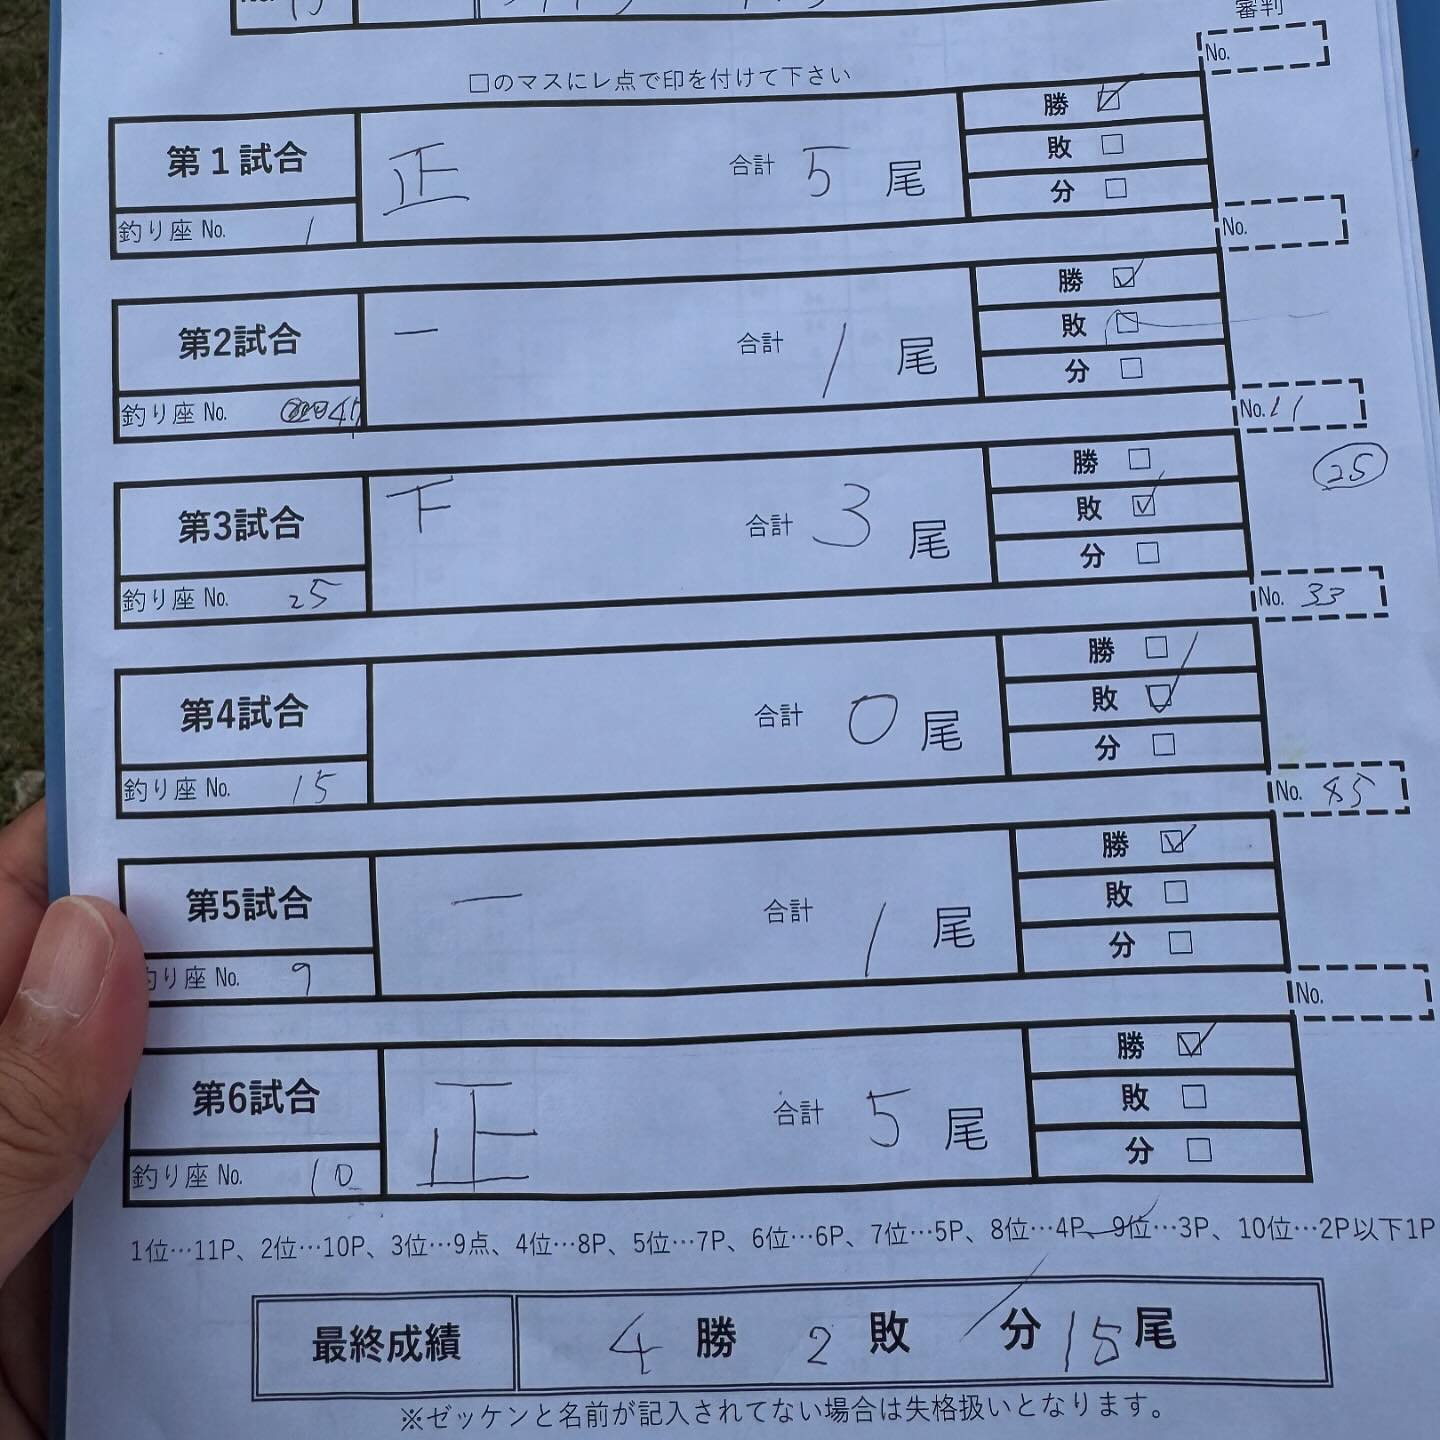 審判
No.
□のマスにレ点で印を付けて下さい
第1試合 正 合計 5 尾
勝 ☑
敗 □
分 □
釣り座 No. 1
No.
第2試合 一 合計 1 尾
勝 ☑
敗 □
分 □
釣り座 No.
No. 11
第3試合 下 合計 3 尾
勝 □
敗 ☑
分 □
25
釣り座 No. 25
No. 33
第4試合 合計 0 尾
勝 □
敗 ☑
分 □
釣り座 No. 15
No. 45
第5試合 一 合計 1 尾
勝 ☑
敗 □
分 □
釣り座 No. 9
No.
第6試合 正 合計 5 尾
勝 ☑
敗 □
分 □
釣り座 No. 10
1位…11P、2位…10P、3位…9点、4位…8P、5位…7P、6位…6P、7位…5P、8位…4P、9位…3P、10位…2P以下1P
最終成績 4 勝 2 敗 / 分 15 尾
※ゼッケンと名前が記入されてない場合は失格扱いとなります。